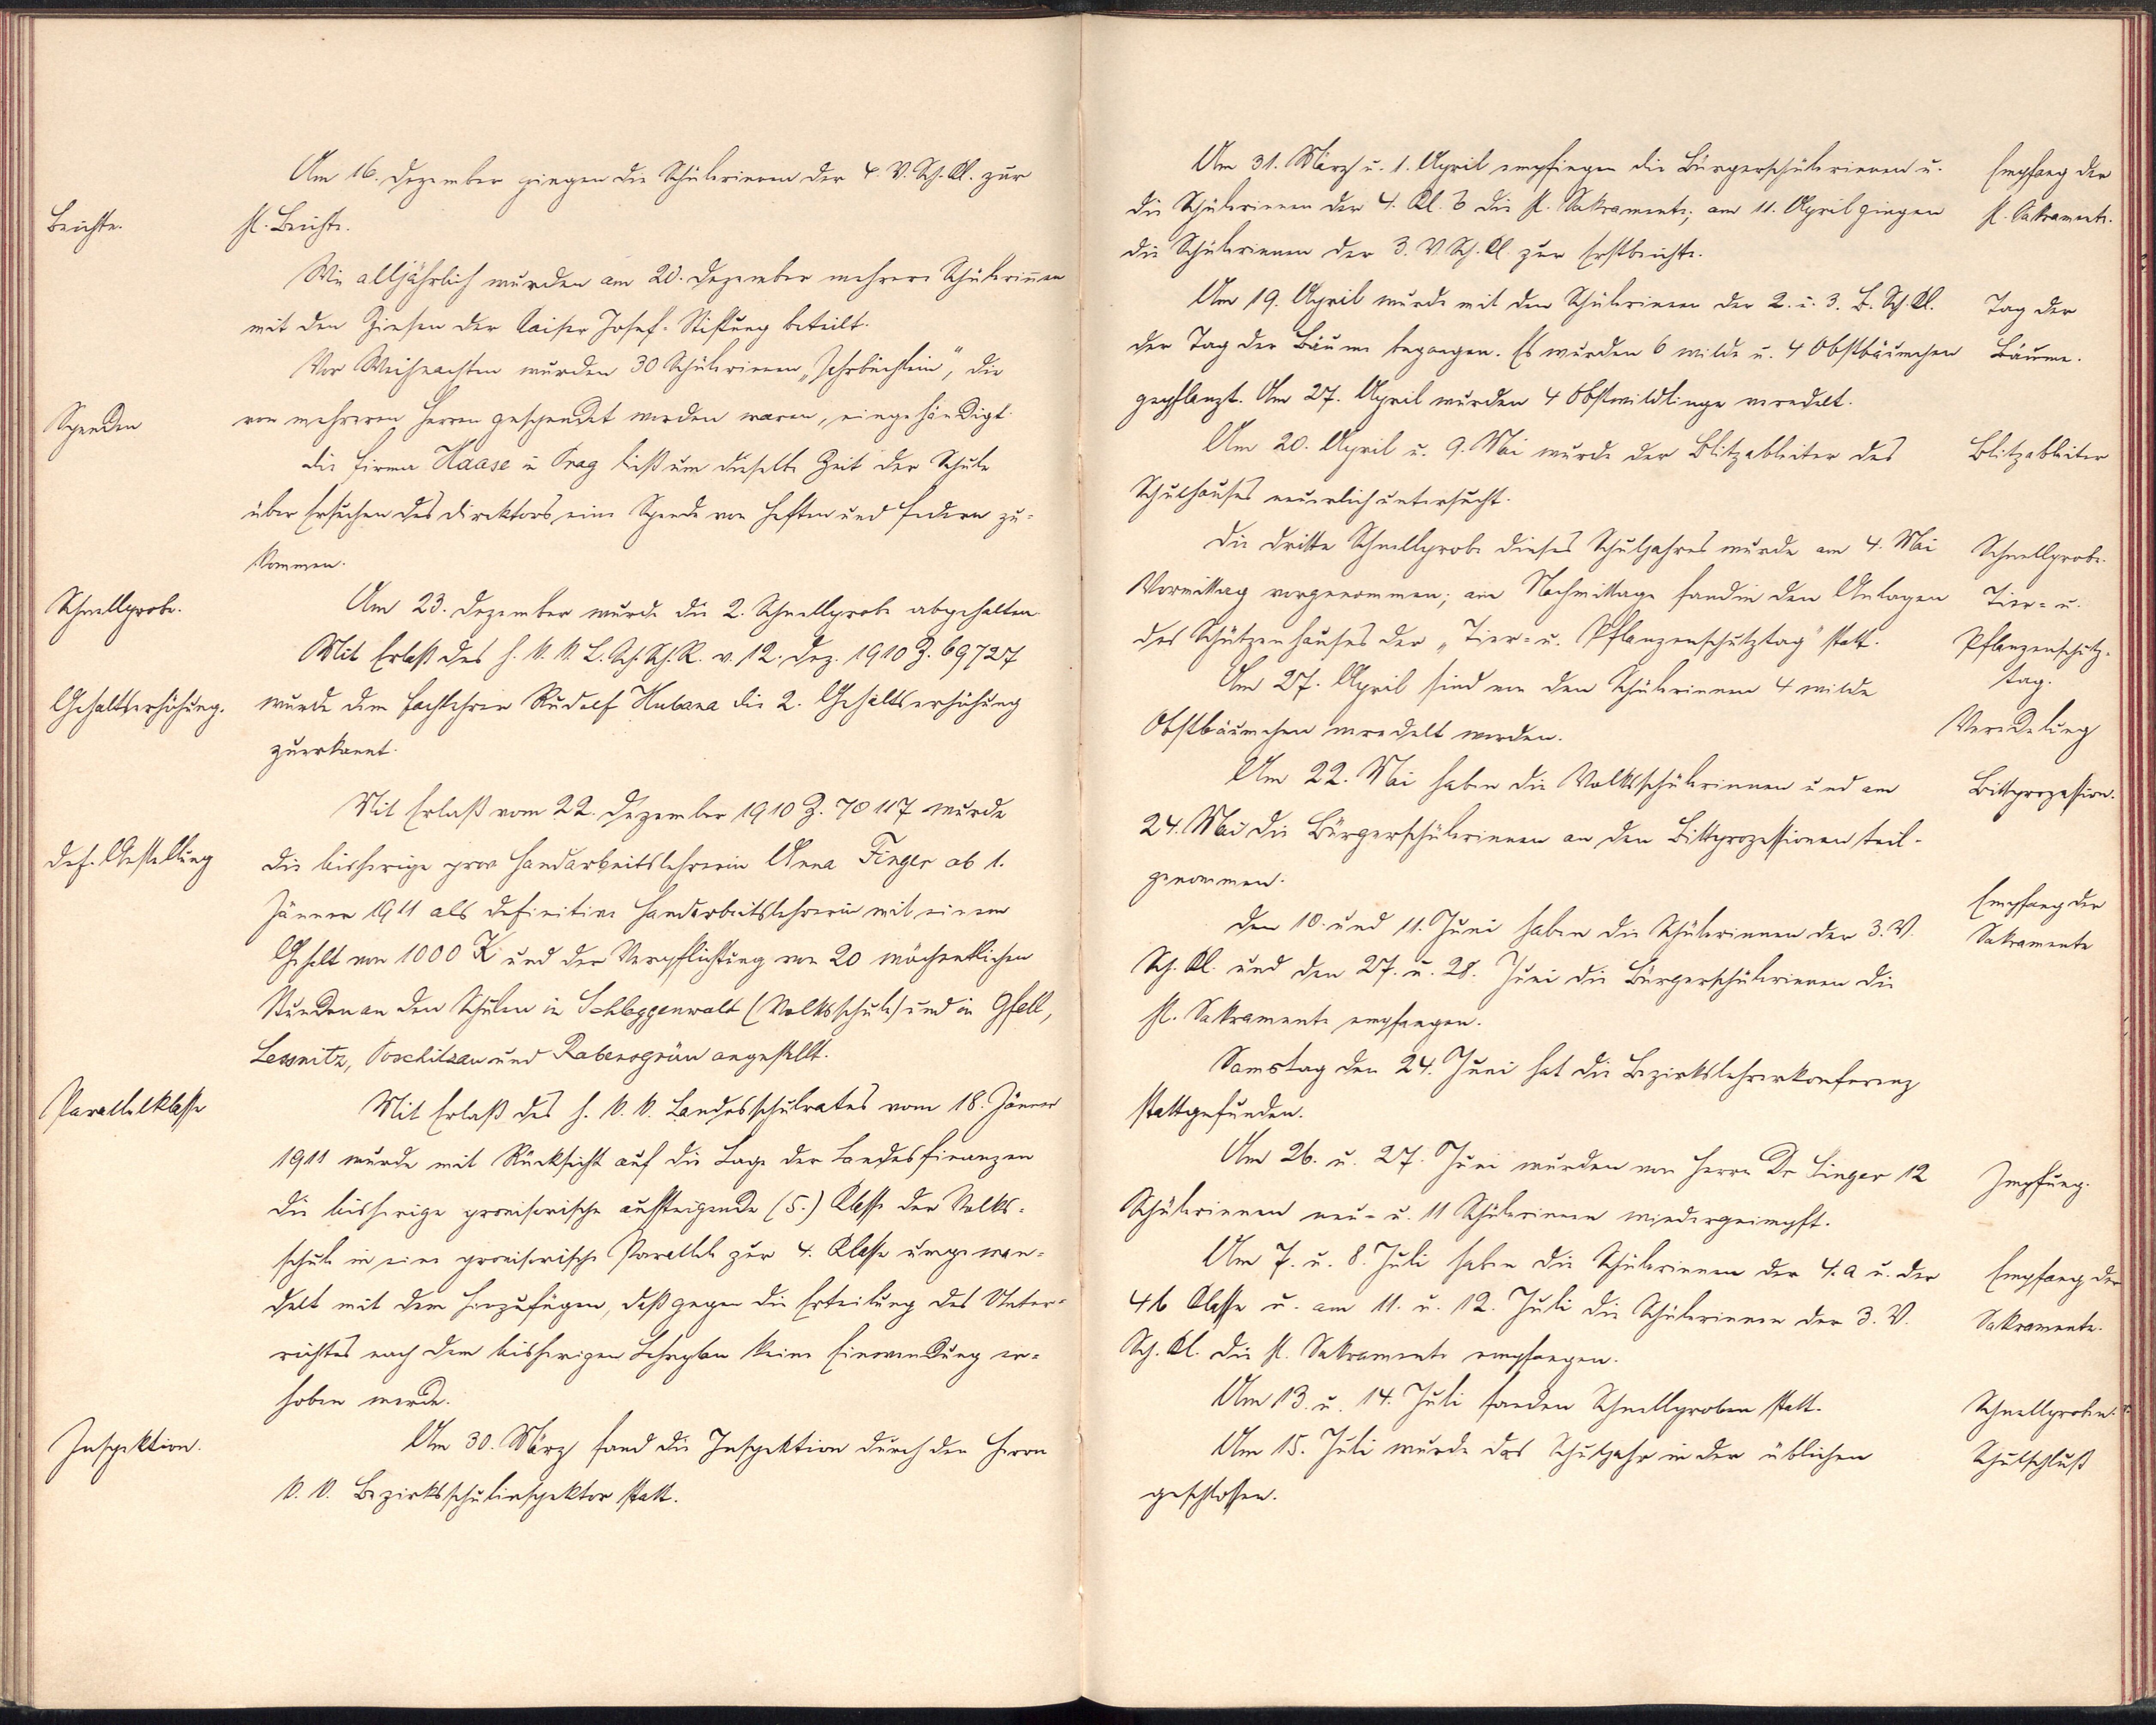 Am 16. Dezember gingen die Schülerinnen der 4. V. Sch. Kl. zur
Beichte.
hl. Beichte.
Wie alljährlich wurden am 20. Dezember mehrere Schülerinnen
mit den Zinsen der Kaiser Josef-Stiftung beteilt.
Vor Weihnachten wurden 30 Schülerinnen „Jahrbüchlein“, die
Spenden
von mehreren Herren gespendet worden waren, eingehändigt.
Die Firma Haase in Prag ließ um dieselbe Zeit der Schule
über Ersuchen des Direktors eine Spende von Heften und Federn zu-
kommen.
Schnellprobe.
Am 23. Dezember wurde die 2. Schnellprobe abgehalten.
Mit Erlaß des h. k. k. L. Sch. R. v. 12. Dez. 1910 Z. 69727
Gehaltserhöhung.
wurde dem Fachlehrer Rudolf Kubana die 2. Gehaltserhöhung
zuerkannt.
Mit Erlaß vom 22. Dezember 1910 Z. 70117 wurde
Def. Anstellung
die bisherige prov Handarbeitslehrerin Anna Finger ab 1.
Jänner 1911 als definitive Handarbeitslehrerin mit einem
Gehalt von 1000 K und der Verpflichtung von 20 wöchentlichen
Stunden an den Schulen in Schlaggenwald (Volksschule) und in Gfell,
Lessnitz, Poschitzau und Rabensgrün angestellt.
Parallelklasse
Mit Erlaß des h. k. k. Landesschulrates vom 18. Jänner
1911 wurde mit Rücksicht auf die Lage der Landesfinanzen
die bisherige provisorische aufsteigende (5.) Klasse der Volks-
schule in eine provisorische Parallele zur 4. Klasse umgewan-
delt mit dem Hinzufügen, daß gegen die Erteilung des Unter-
richtes nach dem bisherigen Lehrplan keine Einwendung er-
hoben werde.
Inspektion.
Am 30. März fand die Inspektion durch den Herrn
k. k. Bezirksschulinspektor statt.
Am 31. März u. 1. April empfingen die Bürgerschülerinnen u.
Empfang der
die Schülerinnen der 4. Kl. B die hl. Sakramente; am 11. April gingen
hl. Sakramente.
die Schülerinnen der 3. V. Sch. Kl. zur Erstbeichte.
Am 19. April wurde mit den Schülerinnen der 2. u. 3. B. Sch. Kl.
Tag der
der Tag der Bäume begangen. Es wurden 6 wilde u. 4 Obstbäumchen
Bäume.
gepflanzt. Am 27. April wurden 4 Obstwildlinge veredelt.
Am 20. April u. 9. Mai wurde der Blitzableiter des
Blitzableiter
Schulhauses neuerlich untersucht.
Die dritte Schnellprobe dieses Schuljahres wurde am 4. Mai
Schnellprobe.
Vormittag vorgenommen; am Nachmittage fand in den Anlagen
Tier- u.
des Schützenhauses der „Tier- u. Pflanzenschutztag“ statt.
Pflanzenschutz-
tag.
Am 27. April sind von den Schülerinnen 4 wilde
Obstbäumchen veredelt worden.
Veredelung
Am 22. Mai haben die Volksschülerinnen und am
Bittprozession.
24. Mai die Bürgerschülerinnen an den Bittprozessionen teil-
genommen.
Empfang der
Den 10. und 11. Juni haben die Schülerinnen der 3. V.
Sakramente
Sch. Kl. und den 27. u. 28. Juni die Bürgerschülerinnen die
hl. Sakramente empfangen.
Samstag den 24. Juni hat die Bezirkslehrerkonferenz
stattgefunden.
Am 26. u. 27. Juni wurden von Herrn Dr. Singer 12
Impfung.
Schülerinnen neu- u. 11 Schülerinnen wiedergeimpft.
Am 7. u. 8. Juli haben die Schülerinnen der 4. a u. der
Empfang der
4 b Klasse u. am 11. u. 12. Juli die Schülerinnen der 3. V.
Sakramente.
Sch. Kl. die hl. Sakramente empfangen.
Am 13. u. 14. Juli fanden Schnellproben statt.
Schnellproben.
Am 15. Juli wurde das Schuljahr in der üblichen
Schulschluß
geschlossen.